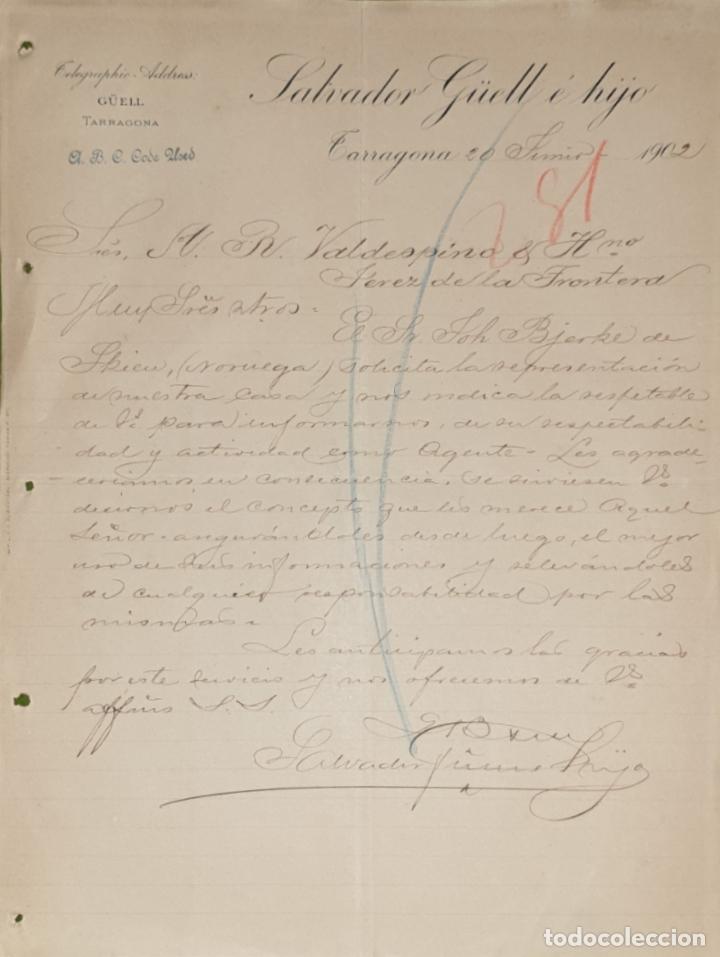 Telegraphic-Address:
GÜELL
TARRAGONA
A. B. C. Code Used
Salvador Güell é hijo
Tarragona 20 Junio 1902
281
Sres. A. R. Valdespino & Hno
Jerez de la Frontera
Muy Sres ntros:
El Sr. Joh Bjerke de
Skien, (Noruega) solicita la representación
de nuestra casa y nos indica la respetable
de Vs. para informarnos, de su respectabili-
dad y actividad como Agente - Les agrade-
ceriamos en consecuencia, se sirviesen Vs.
decirnos el concepto que les merece aquel
Señor - asegurándoles desde luego, el mejor
uso de sus informaciones y relevándoles
de cualquier responsabilidad por las
mismas.
Les anticipamos las gracias
por este servicio y nos ofrecemos de Vs.
affmos S. S.
Salvador Güell é hijo
todocoleccion